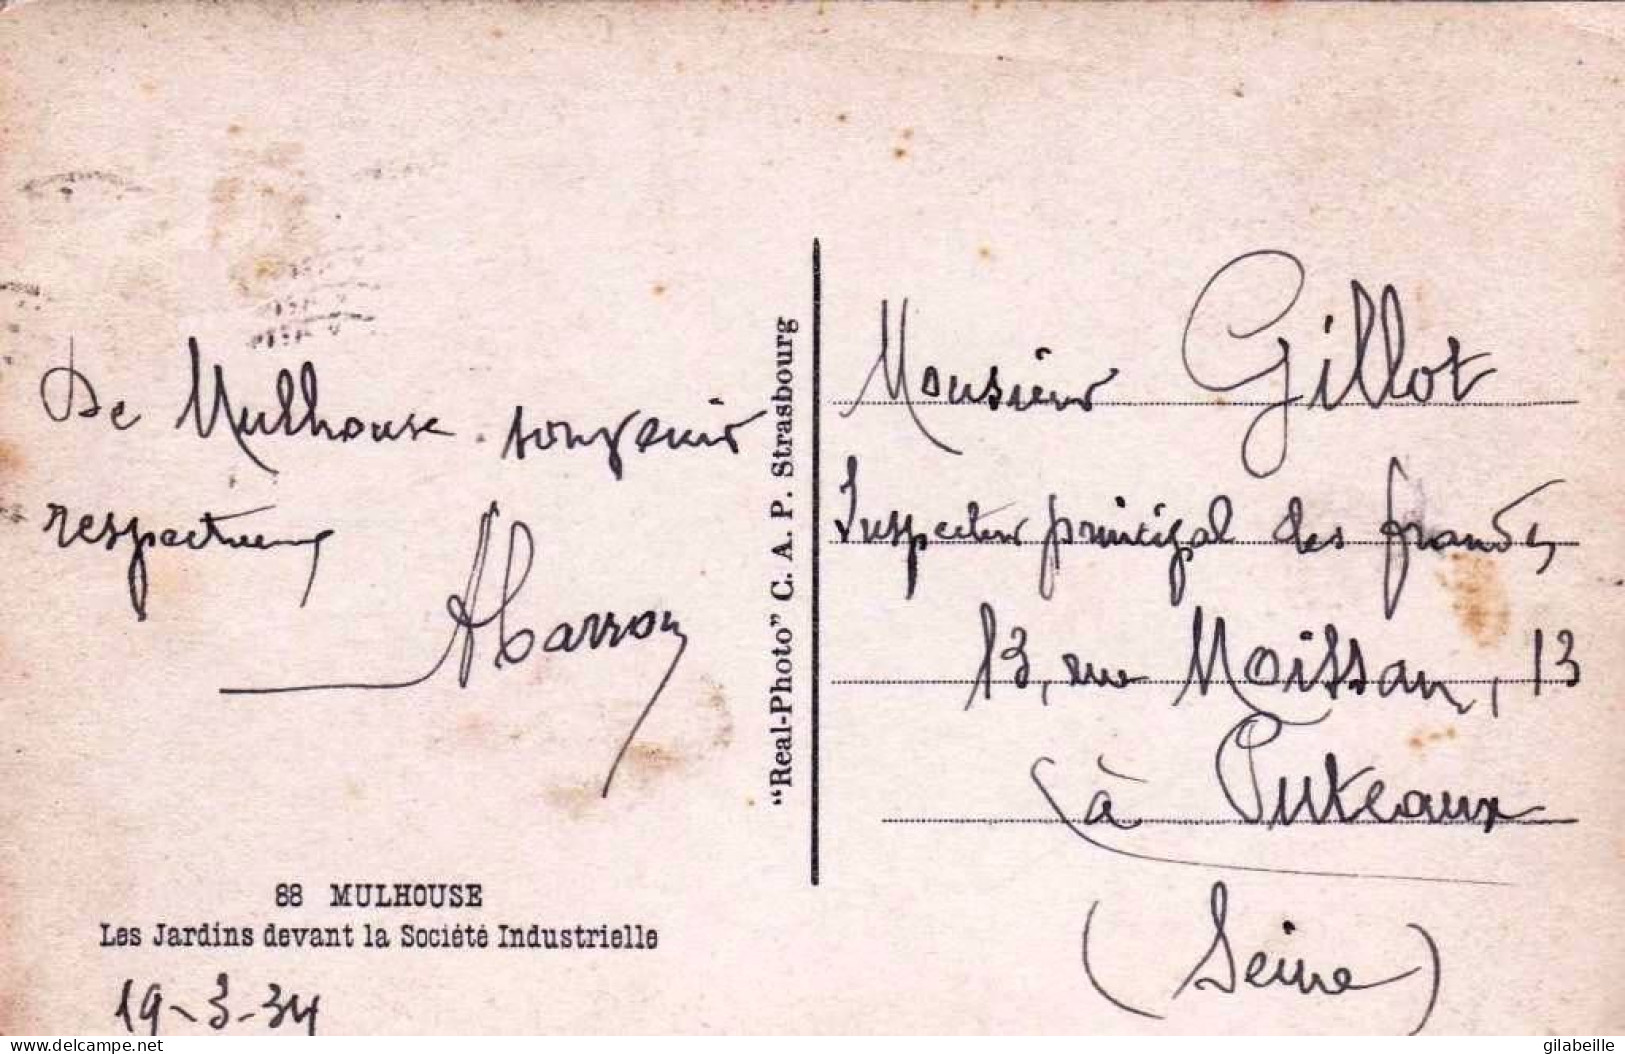 De Mulhouse souvenir
respectueux
88 MULHOUSE
Les Jardins devant la Société Industrielle
19-3-34
"Real-Photo" C. A. P. Strasbourg
Monsieur Gillot
Inspecteur principal des
13, rue Moissan, 13
à Puteaux
(Seine)
delcampe.net
gilabeille